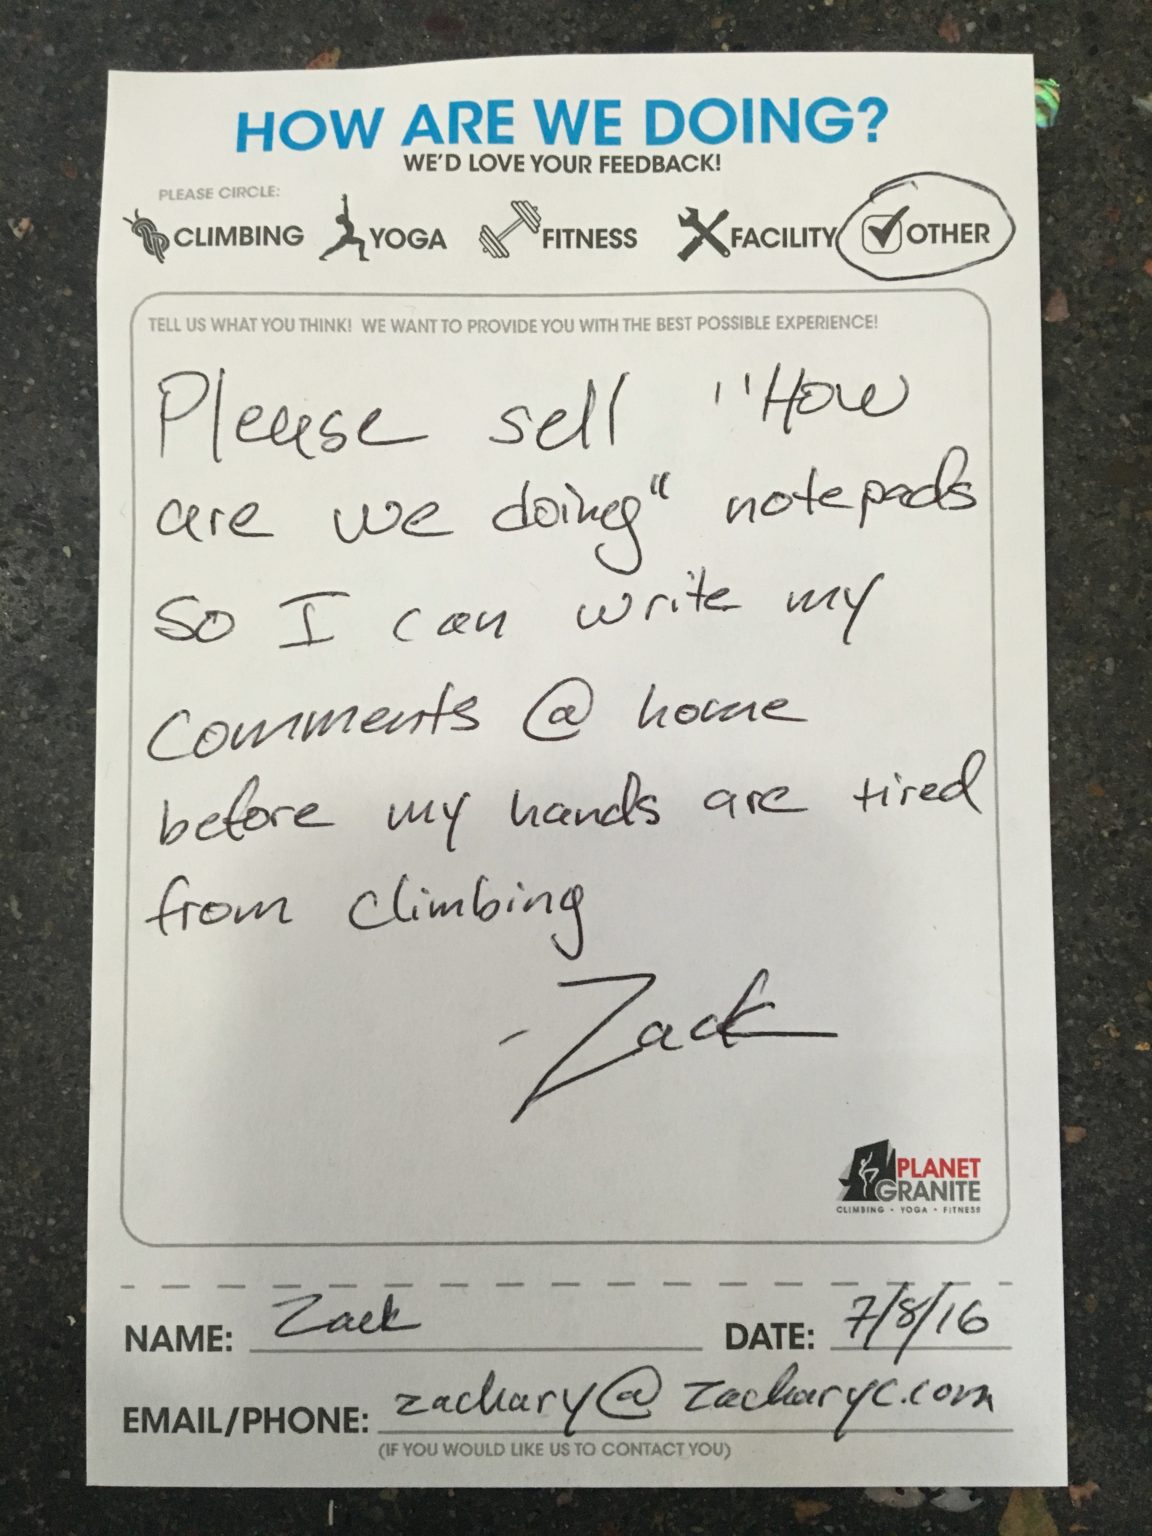 HOW ARE WE DOING?
WE'D LOVE YOUR FEEDBACK!
PLEASE CIRCLE:
CLIMBING YOGA FITNESS FACILITY OTHER
TELL US WHAT YOU THINK! WE WANT TO PROVIDE YOU WITH THE BEST POSSIBLE EXPERIENCE!
Please sell "How
are we doing" notepads
so I can write my
comments @ home
before my hands are tired
from climbing
-Zack
PLANET
GRANITE
CLIMBING • YOGA • FITNESS
NAME: Zack DATE: 7/8/16
EMAIL/PHONE: zachary@zacharyc.com
(IF YOU WOULD LIKE US TO CONTACT YOU)